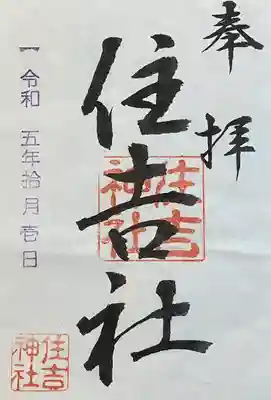 奉拝
住吉社
住吉神社
一 令和 五年拾月壱日
住吉神社